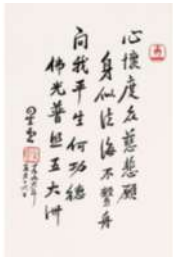 心懷度眾慈悲願
身似法海不繫舟
問我平生何功德
佛光普照五大洲
星雲